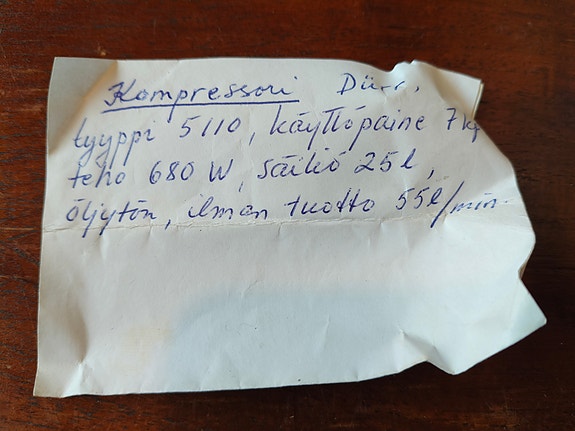 Kompressori Dürr,
tyyppi 5110, käyttöpaine 7 kp
teho 680 W, säiliö 25 l,
öljytön, ilman tuotto 55 l/min.